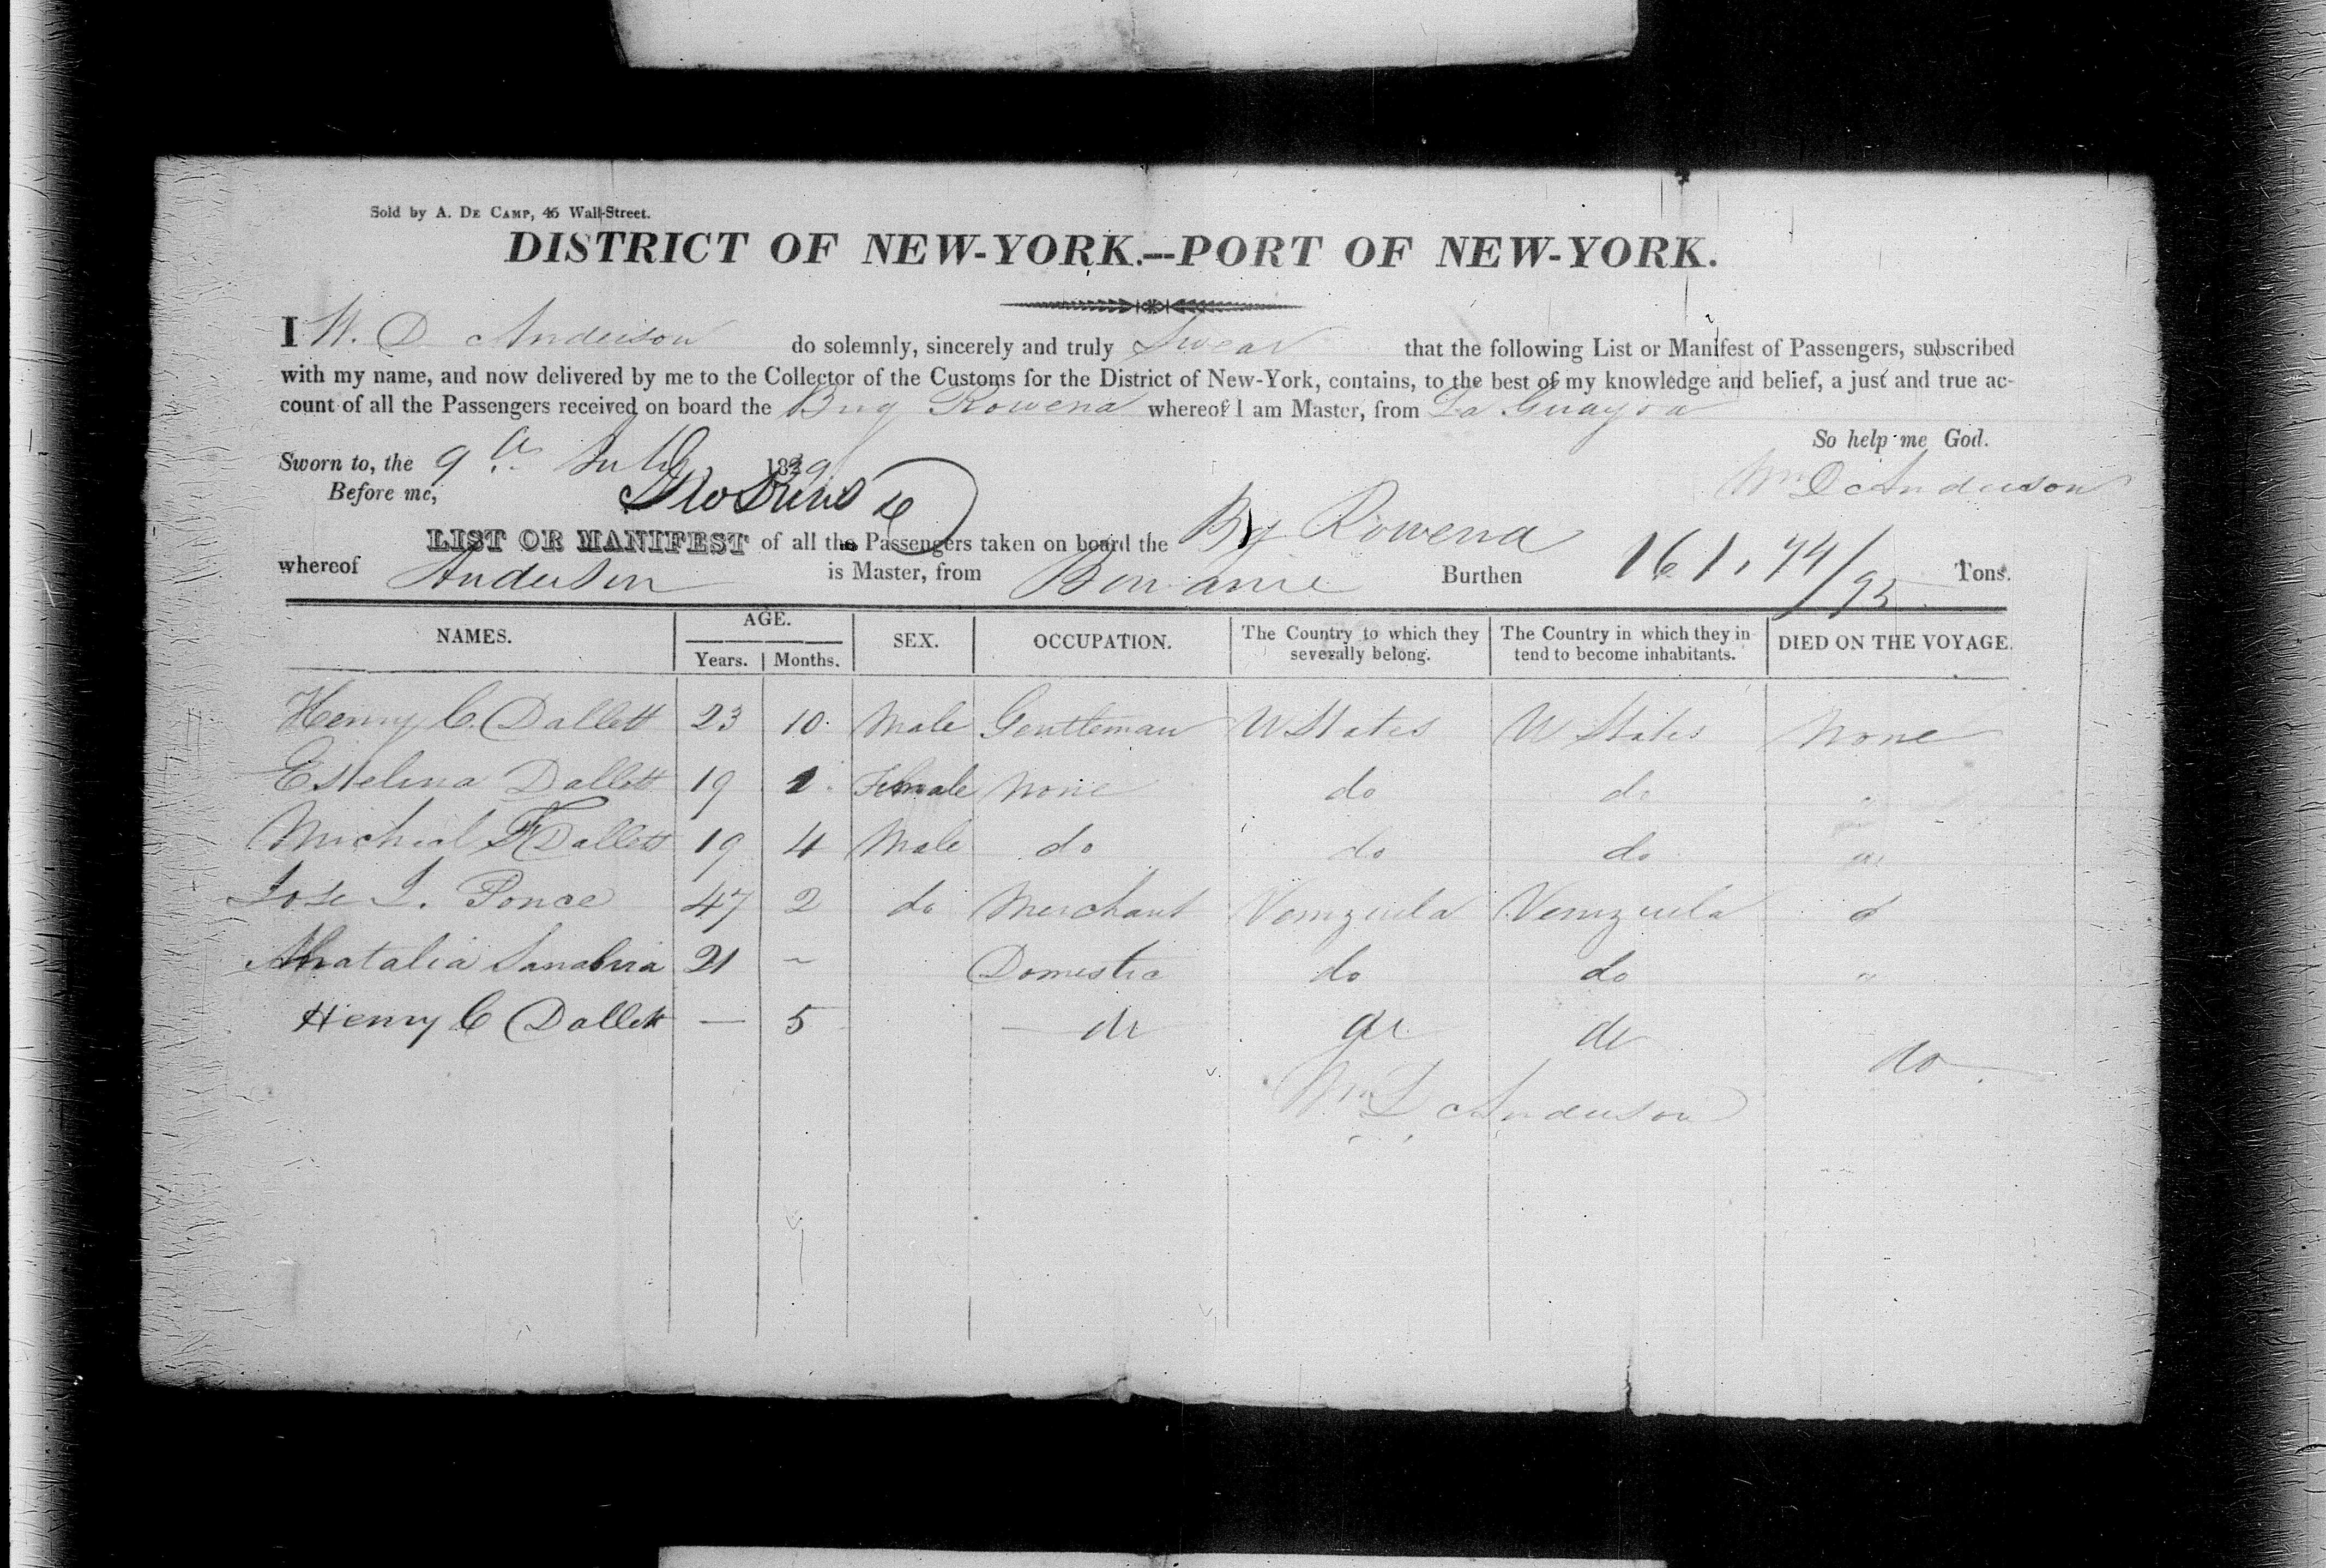 Sold by A. DE CAMP, 45 Wall-Street.
DISTRICT OF NEW-YORK.--PORT OF NEW-YORK.
I W. D Anderson do solemnly, sincerely and truly Swear that the following List or Manifest of Passengers, subscribed
with my name, and now delivered by me to the Collector of the Customs for the District of New-York, contains, to the best of my knowledge and belief, a just and true ac-
count of all the Passengers received on board the Brig Rowena whereof I am Master, from La Guayra
So help me God.
Sworn to, the 9th July 1839
Wm D Anderson
Before me,
LIST OR MANIFEST of all the Passengers taken on board the Brig Rowena
whereof Anderson is Master, from Burthen 161.74/95 Tons.
NAMES. AGE. SEX. OCCUPATION. The Country to which they severally belong. The Country in which they in tend to become inhabitants. DIED ON THE VOYAGE.
Years. Months.
Henry C. Dallett 23 10 Male Gentleman U States U States None
Estelina Dallett 19 1 Female None do do "
Micheal F Dallett 19 4 Male do do do
Jose L. Ponce 47 2 do Merchant Venezuela Venezuela
Natalia Sanabria 21 ~ Domestic do do "
Henry C Dallett — 5 — do do do do
Wm D Anderson